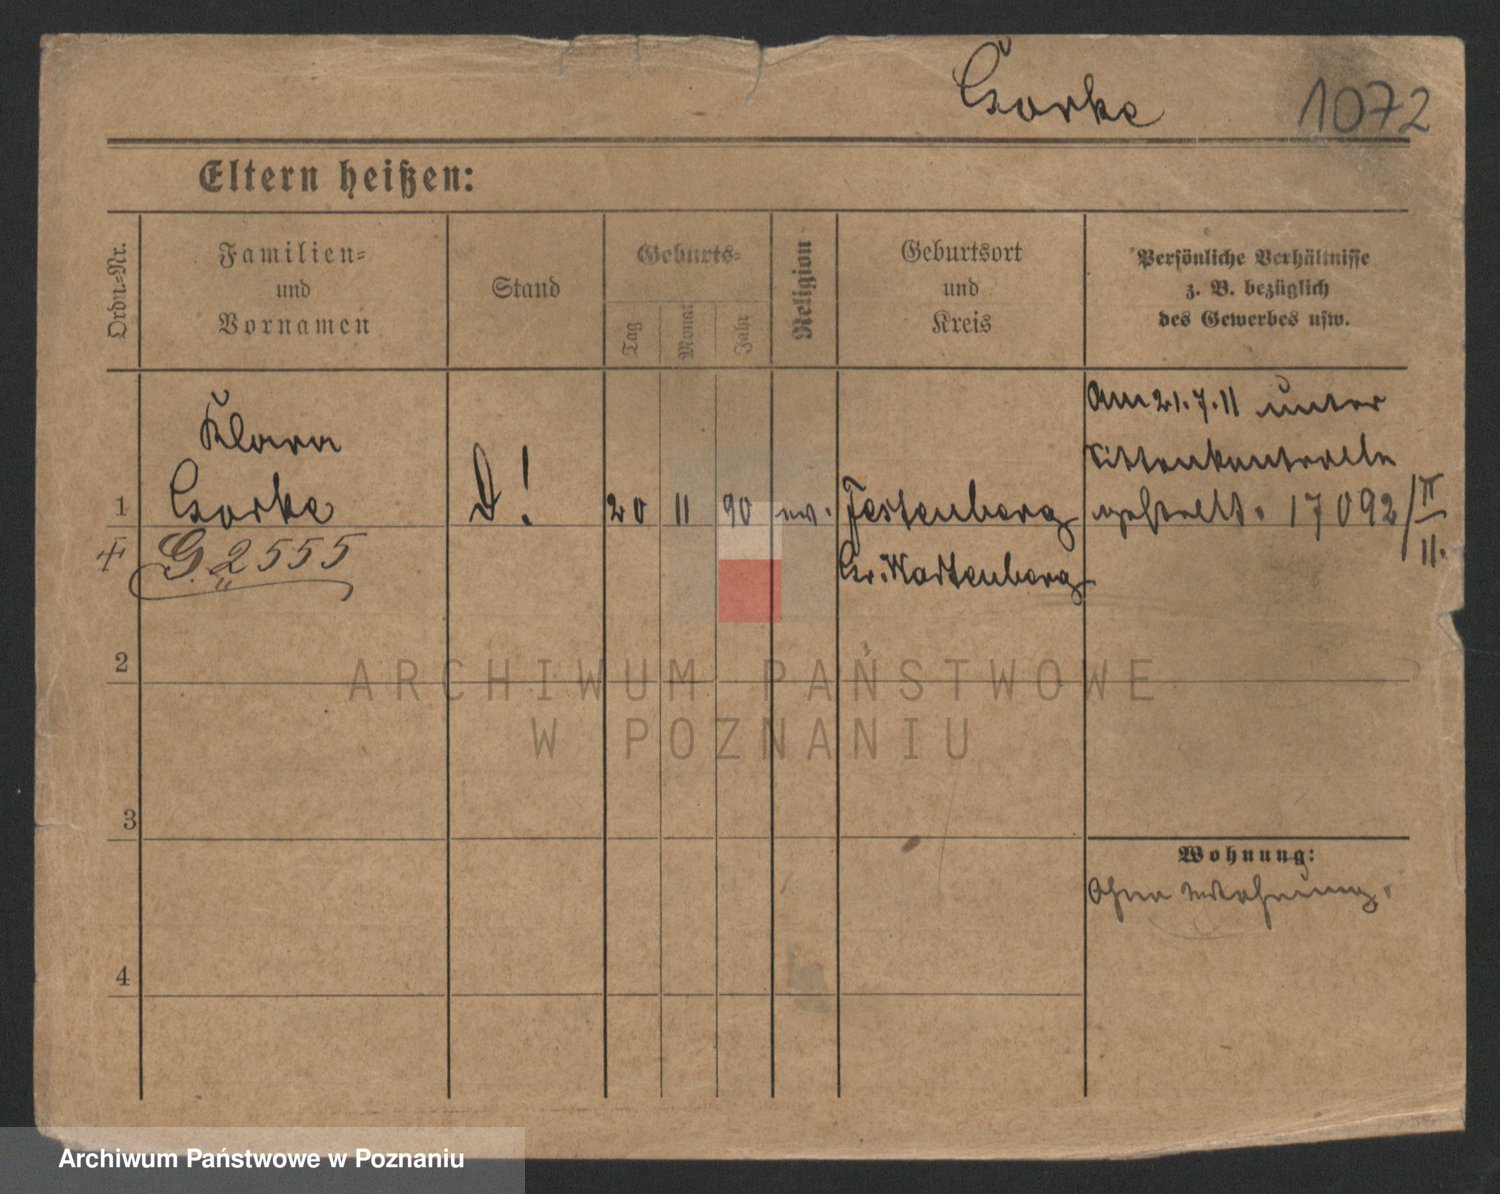 Gorke 1072
Eltern heißen:
Ordn.=Nr.
Familien=
und
Vornamen
Stand
Geburts=
Tag
Monat
Jahr
Religion
Geburtsort
und
Kreis
Persönliche Verhältnisse
z. B. bezüglich
des Gewerbes usw.
1
Klara
Gorke
G. 2555
D!
20 11 90 ev.
Festenberg
Gr. Wartenberg
Am 21.7.11 unter
Sittenkontrolle
gestellt. 17092/II
11.
2
3
4
Wohnung:
Ohne Wohnung.
ARCHIWUM PAŃSTWOWE
W POZNANIU
Archiwum Państwowe w Poznaniu